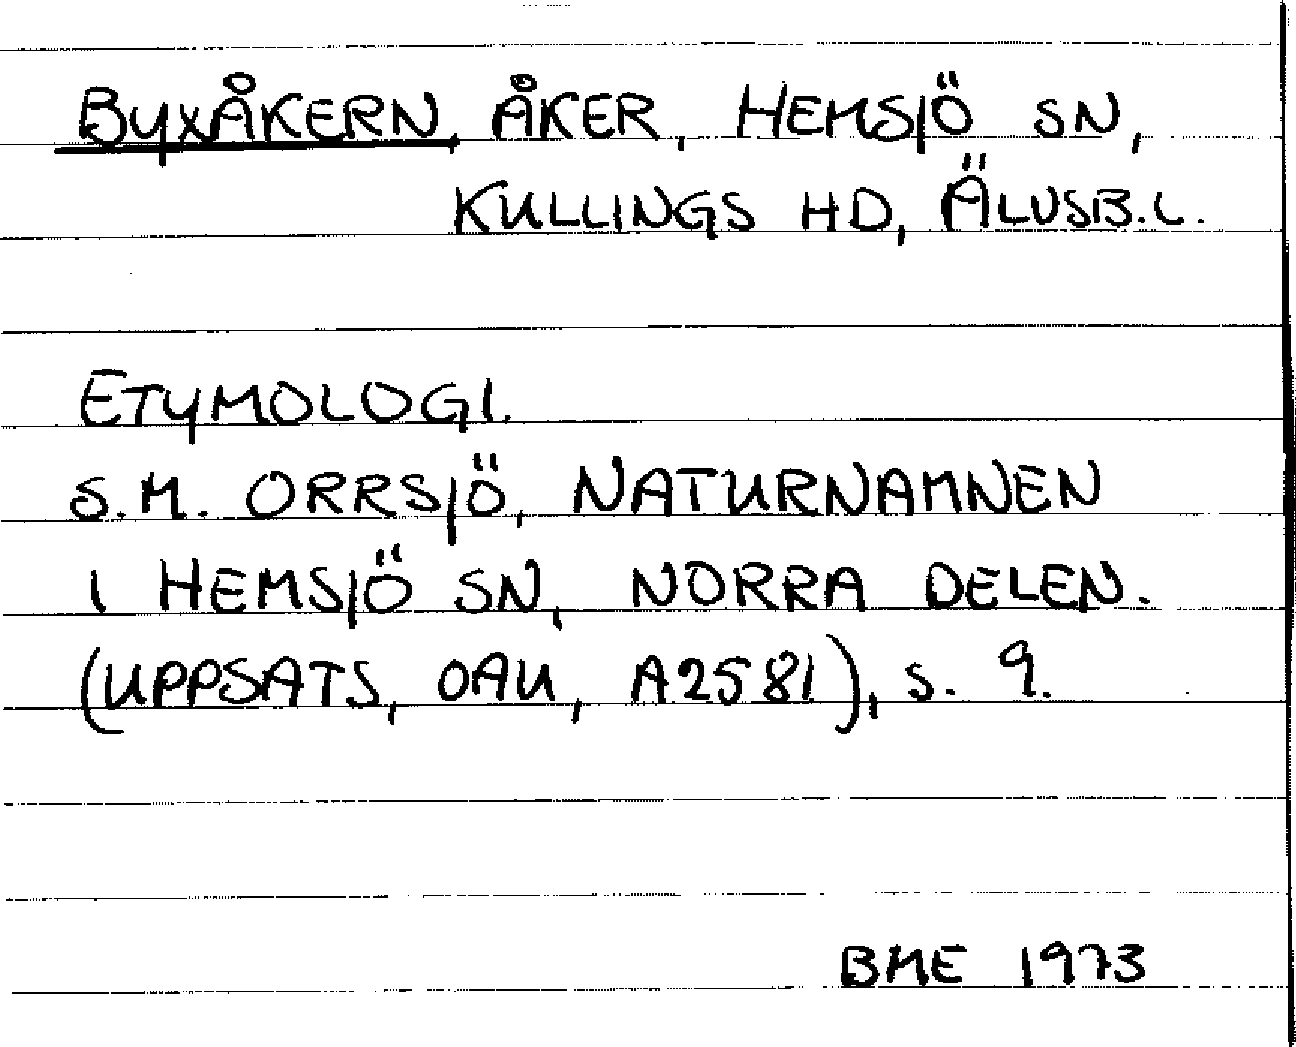 BYXÅKERN, ÅKER, HEMSJÖ SN,
KULLINGS HD, ÄLVSB.L.
ETYMOLOGI.
S.M. ORRSJÖ, NATURNAMNEN
I HEMSJÖ SN, NORRA DELEN.
(UPPSATS, OAU, A2581), S. 9.
BME 1973